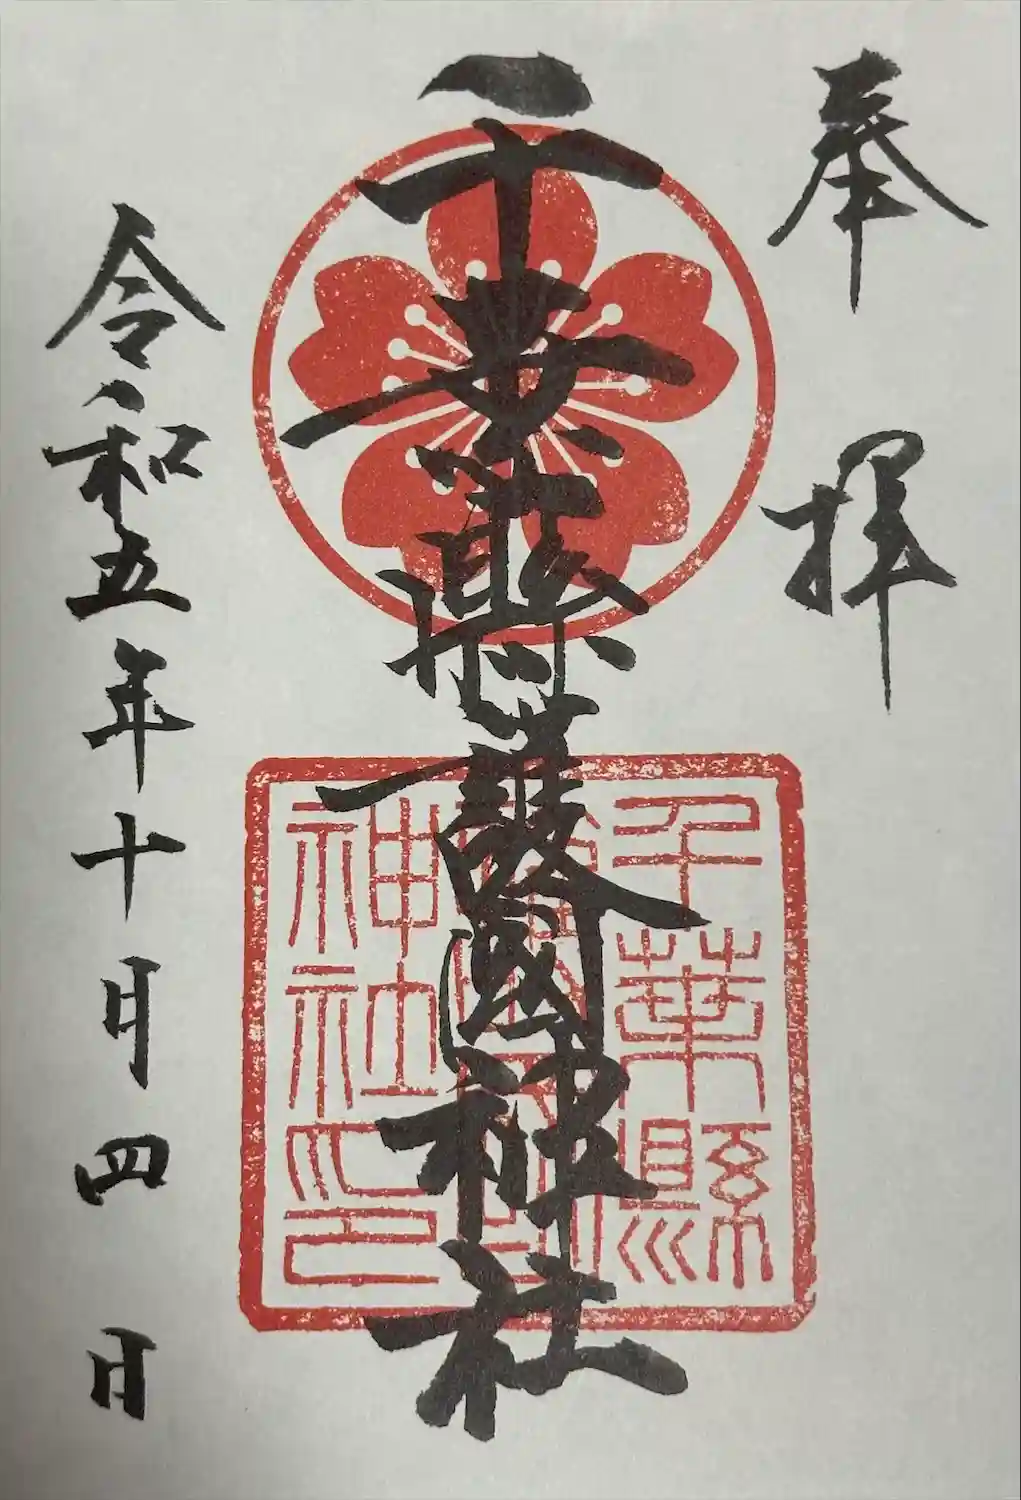 奉拝
千葉縣護國神社
千葉縣
神社印
令和五年十月四日